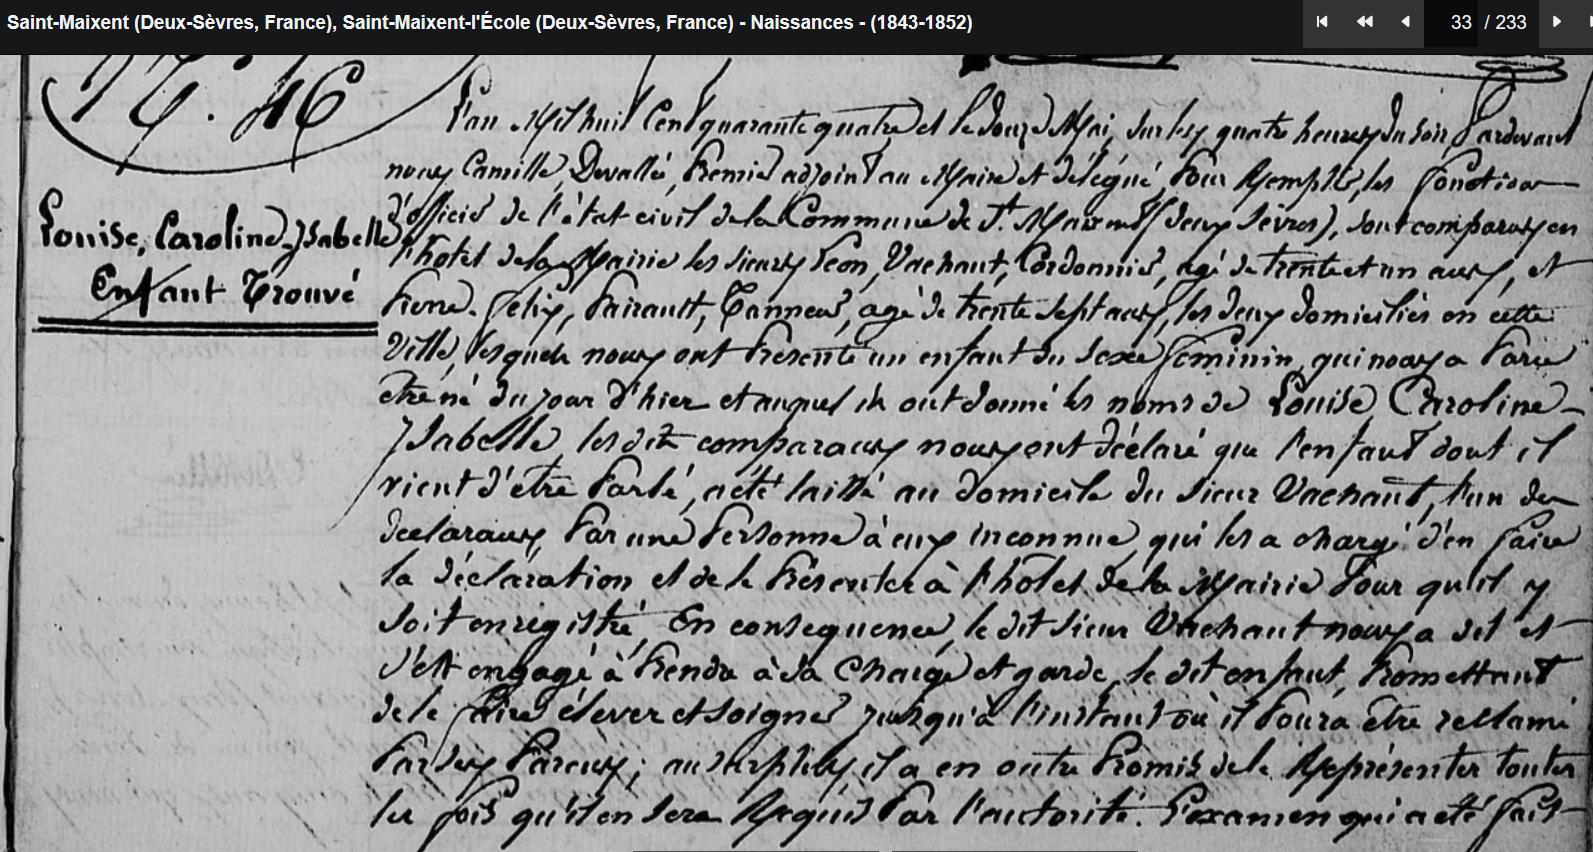 Saint-Maixent (Deux-Sèvres, France), Saint-Maixent-l'École (Deux-Sèvres, France) - Naissances - (1843-1852)
33 / 233
N.° 46
Louise, Caroline, Isabelle
Enfant Trouvé
L'an Mil huit Cent quarante quatre et le douze Mai, sur les quatre heures du soir, Pardevant
nous Camille, Devallée, Premier adjoint au Maire et délégué, Pour Remplir, les fonctions
d'officier de l'état civil de la Commune de St. Maixent (deux Sèvres), sont comparus en
l'hotel de la Mairie les sieurs Léon, Vachaut, Cordonnier, agé de trente et un ans, et
Pierre. Felix, Pairault, Tanneur, agé de trente sept ans, les deux domiciliés en cette
Ville, lesquels nous ont Présenté un enfant du sexe feminin, qui nous a Paru
etre né du jour d'hier et auquel ils ont donné les noms de Louise Caroline
Isabelle, les dits comparans nous ont déclaré que l'enfant dont il
vient d'être Parlé, a été laissé au domicile du sieur Vachaut, l'un des
declarans, Par une Personne à eux inconnue, qui les a chargé d'en faire
la déclaration et de le Présenter à l'hotel de la Mairie Pour qu'il y
soit enregistré, En consequence, le dit sieur Vachaut nous a dit et
s'est engagé à Prendre à sa Charge et garde, le dit enfant, Promettant
de le faire élever et soigner jusqu'à l'instant où il Poura être réclamé
Par ses Parens; au surplus, il a en outre Promis de le Représenter toutes
les fois qu'il en sera Requis Par l'autorité. L'examen qui a été fait